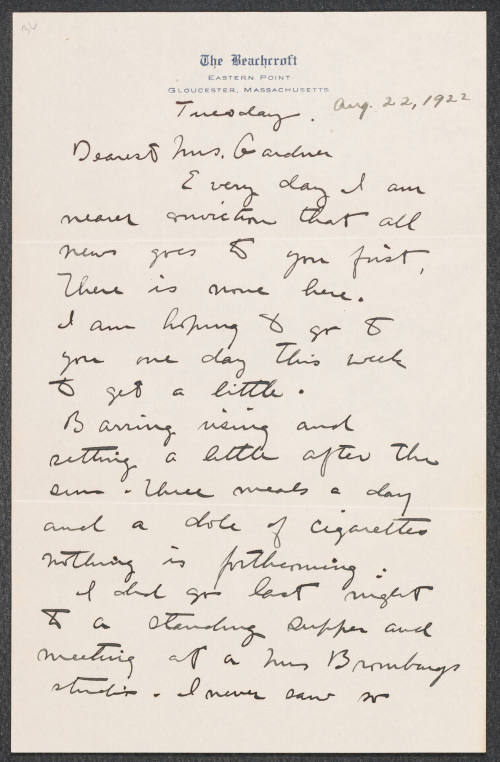 The Beachcroft
EASTERN POINT
GLOUCESTER, MASSACHUSETTS
Tuesday. Aug. 22, 1922
Dearest Mrs. Gardner
Every day I am
nearer conviction that all
news goes to you first,
There is none here.
I am hoping to go to
you one day this week
to get a little.
Barring rising and
setting a little after the
sun. Three meals a day
and a dole of cigarettes
nothing is forthcoming.
I did go last night
to a standing supper and
meeting at a Mrs Brombergs
studio. I never saw so